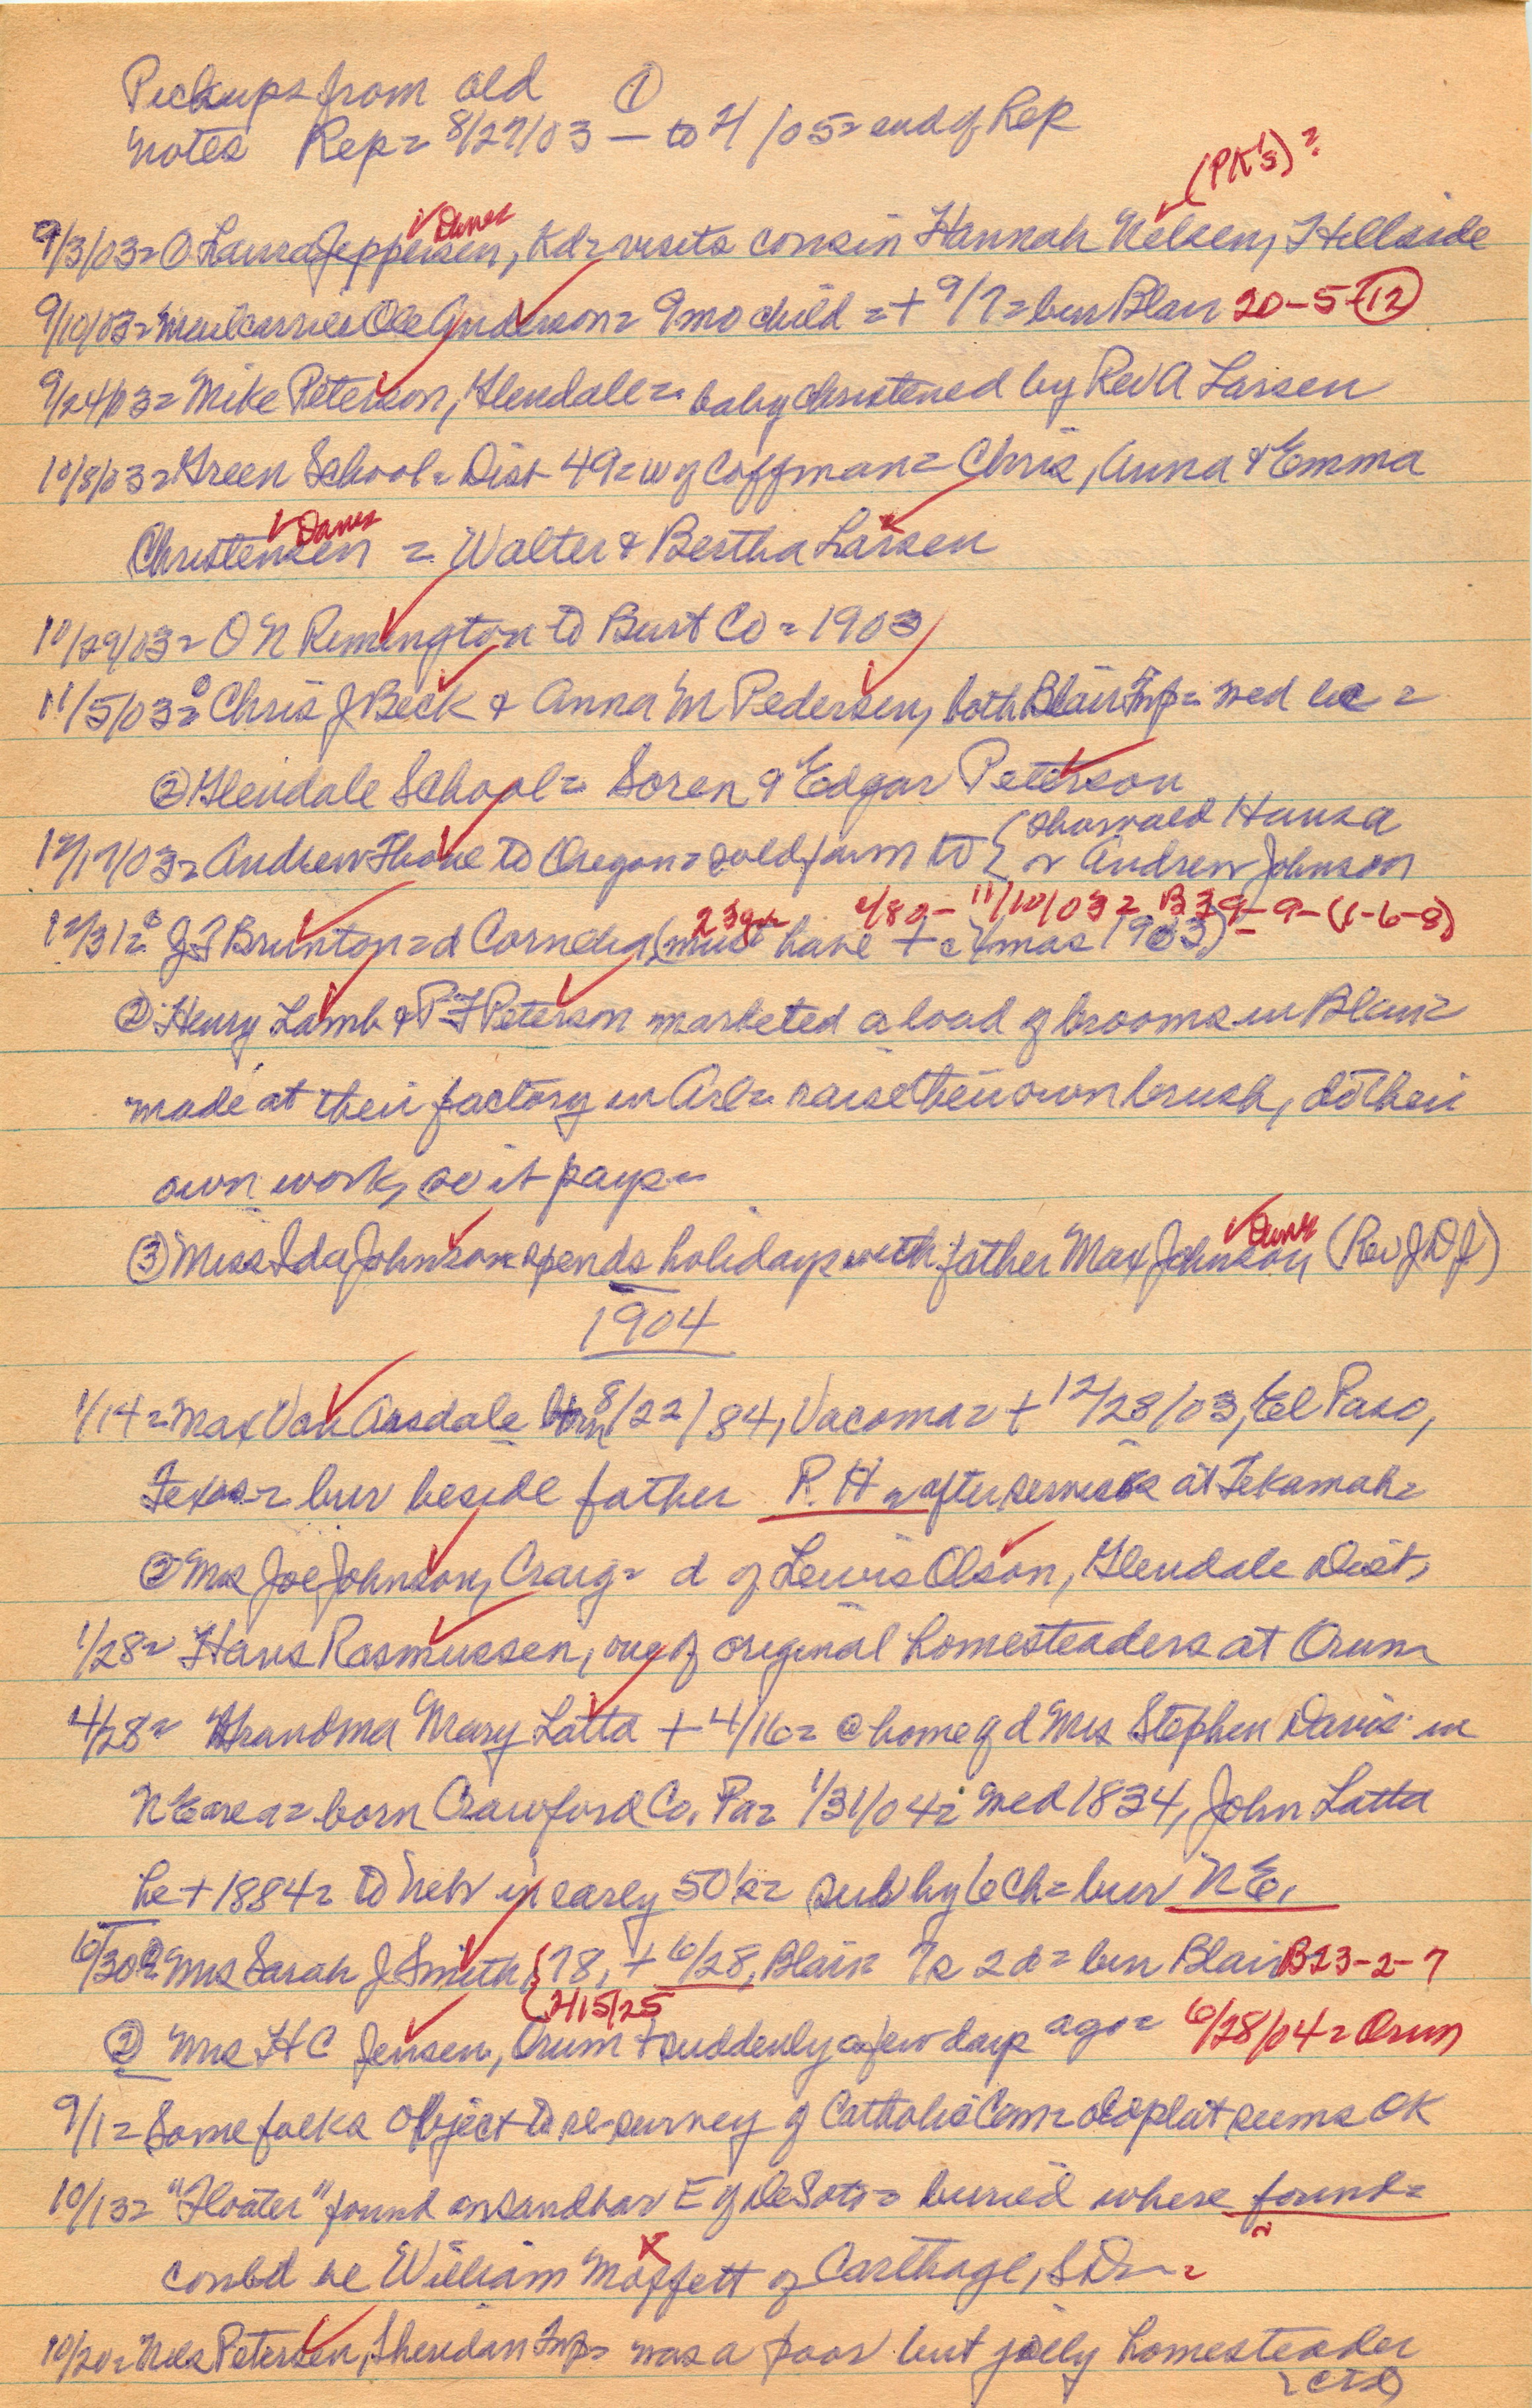 Pickups from old ①
notes Rep = 8/27/03 — to 4/05 = end of Rep
(PK's) =
9/3/03 = Laura Jeppesen, Danes Kd = visits cousin Hannah Nelsen, Hillside
9/10/03 = mailcarrier Ole Anderson = 9 mo child = + 9/7 = bur Blair 20-5-(12)
9/24/03 = Mike Peterson, Glendale = baby christened by Rev A Larsen
10/8/03 = Green School = Dist 49 = w of Coffman = Chris, Anna & Emma
Christensen Danes = Walter & Bertha Larsen
10/29/03 = O N Remington to Burt Co = 1903
11/5/03 = Chris J Beck & Anna M Pedersen, both Blair Twp = wed lic =
② Glendale School = Soren & Edgar Peterson
12/17/03 = Andrew Thone to Oregon = sold farm to { Thorwald Hansa
or Andrew Johnson
12/31 = J F Brunton = d Cornelia, (must have + c Xmas 1903) =
23 yr 4/80 - 11/10/03 = B39-9-(1-6-8)
② Henry Lamb & P F Peterson marketed a load of brooms in Blair =
made at their factory in Arl = raise their own brush, do their
own work, so it pays =
③ Miss Ida Johnson spends holidays with father Max Johnson, Danes (Rev J D J)
1904
1/14 = Max Van Arsdale born 8/22/84, Vacoma = + 12/23/03, El Paso,
Texas = bur beside father R. H = after services at Tekamah =
② Mrs Joe Johnson, Craig = d of Lewis Olson, Glendale Dist,
1/28 = Hans Rasmussen, one of original homesteaders at Orum
4/28 = Grandma Mary Latta + 4/16 = @ home of d Mrs Stephen Davis in
N E area = born Crawford Co. Pa = 1/31/04 = wed 1834, John Latta
he + 1884 = to Neb in early 50's = sub by 6 ch = bur N E.
6/30 = Mrs Sarah J Smith, 78, + 6/28, Blair = 7s 2d = bur Blair B23-2-7
2/15/25
② Mrs H C Jensen, Orum + suddenly a few days ago = 6/28/04 = Orum
9/1 = Some folks object to re-survey of Catholic Cem = old plat seems OK
10/13 = "Floater" found on sandbar E of DeSoto = buried where found =
could be William Moffett of Carthage, S D =
10/20 = Nels Petersen, Sheridan Twp = was a poor but jolly homesteader